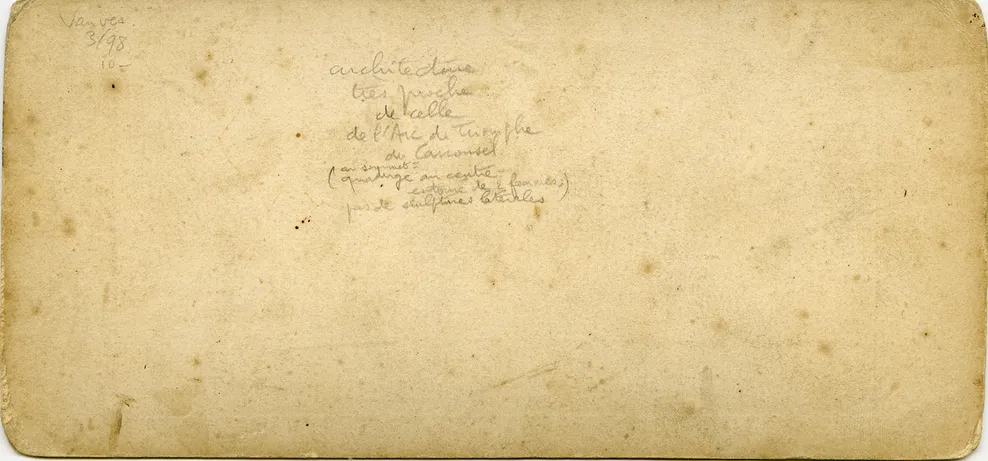 Vanves
3/98
10-
architecture
très proche
de celle
de l'Arc de Triomphe
du Carrousel
au sommet =
(quadrige au centre
entouré de 2 femmes;)
pas de sculptures latérales